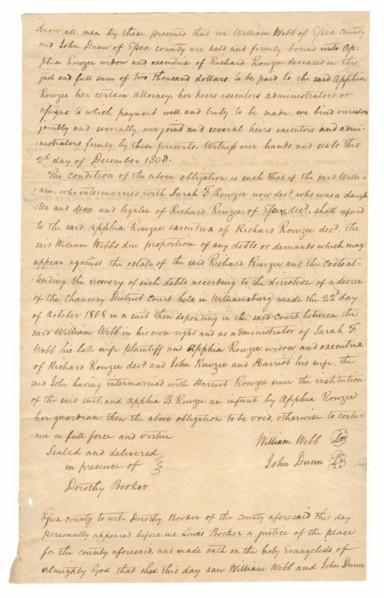 Know all men by these presents that we William Webb of Essex County
and John Dunn of Essex county are held and firmly bound unto Ap-
phia Rowzee widow and executrix of Richard Rowzee deceased in the
just and full sum of two thousand dollars to be paid to the said Apphia
Rowzee her certain attorney, her heirs executors administrators or
assigns to which payment well and truly to be made, we bind ourselves
jointly and severally our joint and several heirs executors and admi-
nistrators firmly by these presents. Witness our hands and seals this
2d day of December 1808.
The condition of the above obligation is such that if the said Will-
iam, who intermarried with Sarah F. Rowzee now decd who was a daugh-
ter and and legatee of Richard Rowzee of Essex decd, shall refund
to the said Apphia Rowzee executrix of Richard Rowzee decd, the
said William Webbs due proportion of any debts or demands which may
appear against the estate of the said Richard Rowzee and the costs at-
tending the recovery of such debts according to the direction of a decree
of the Chancery District Court held in Williamsburg made the 22d day
of October 1808 in a suit then depending in the said court between the
said William Webb in his own right and as administrator of Sarah F.
Webb his late wife plaintiff and Apphia Rowzee widow and executrix
of Richard Rowzee decd and John Rowzee and Harriot his wife, the
said John having intermarried with Harriot Rowzee since the institution
of the said suit, and Apphia B Rowzee an infant by Apphia Rowzee
her guardian then the above obligation to be void, otherwise to conti-
nue in full force and virtue
Sealed and delivered
in presence of
William Webb
John Dunn
Dorothy Booker
Essex county to wit. Dorothy Booker of the county aforesaid this day
personally appeared before me Lewis Booker a justice of the peace
for the county aforesaid, and made oath on the holy Evangelists of
almighty God that she this day saw William Webb and John Dunn